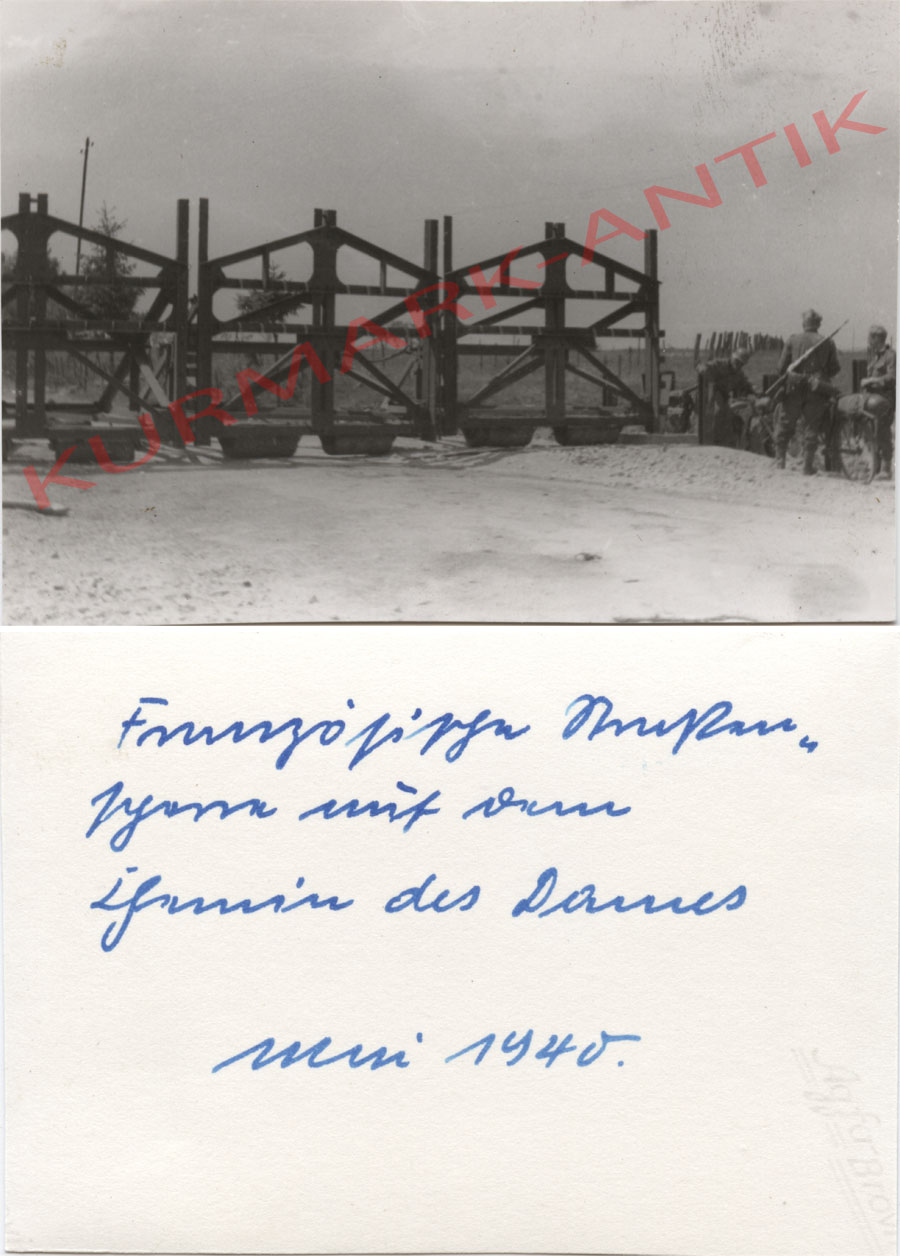 KURMARK-ANTIK
Französische Straßen„
sperre auf dem
Chemin des Dames
Mai 1940.
Agfa Brovi